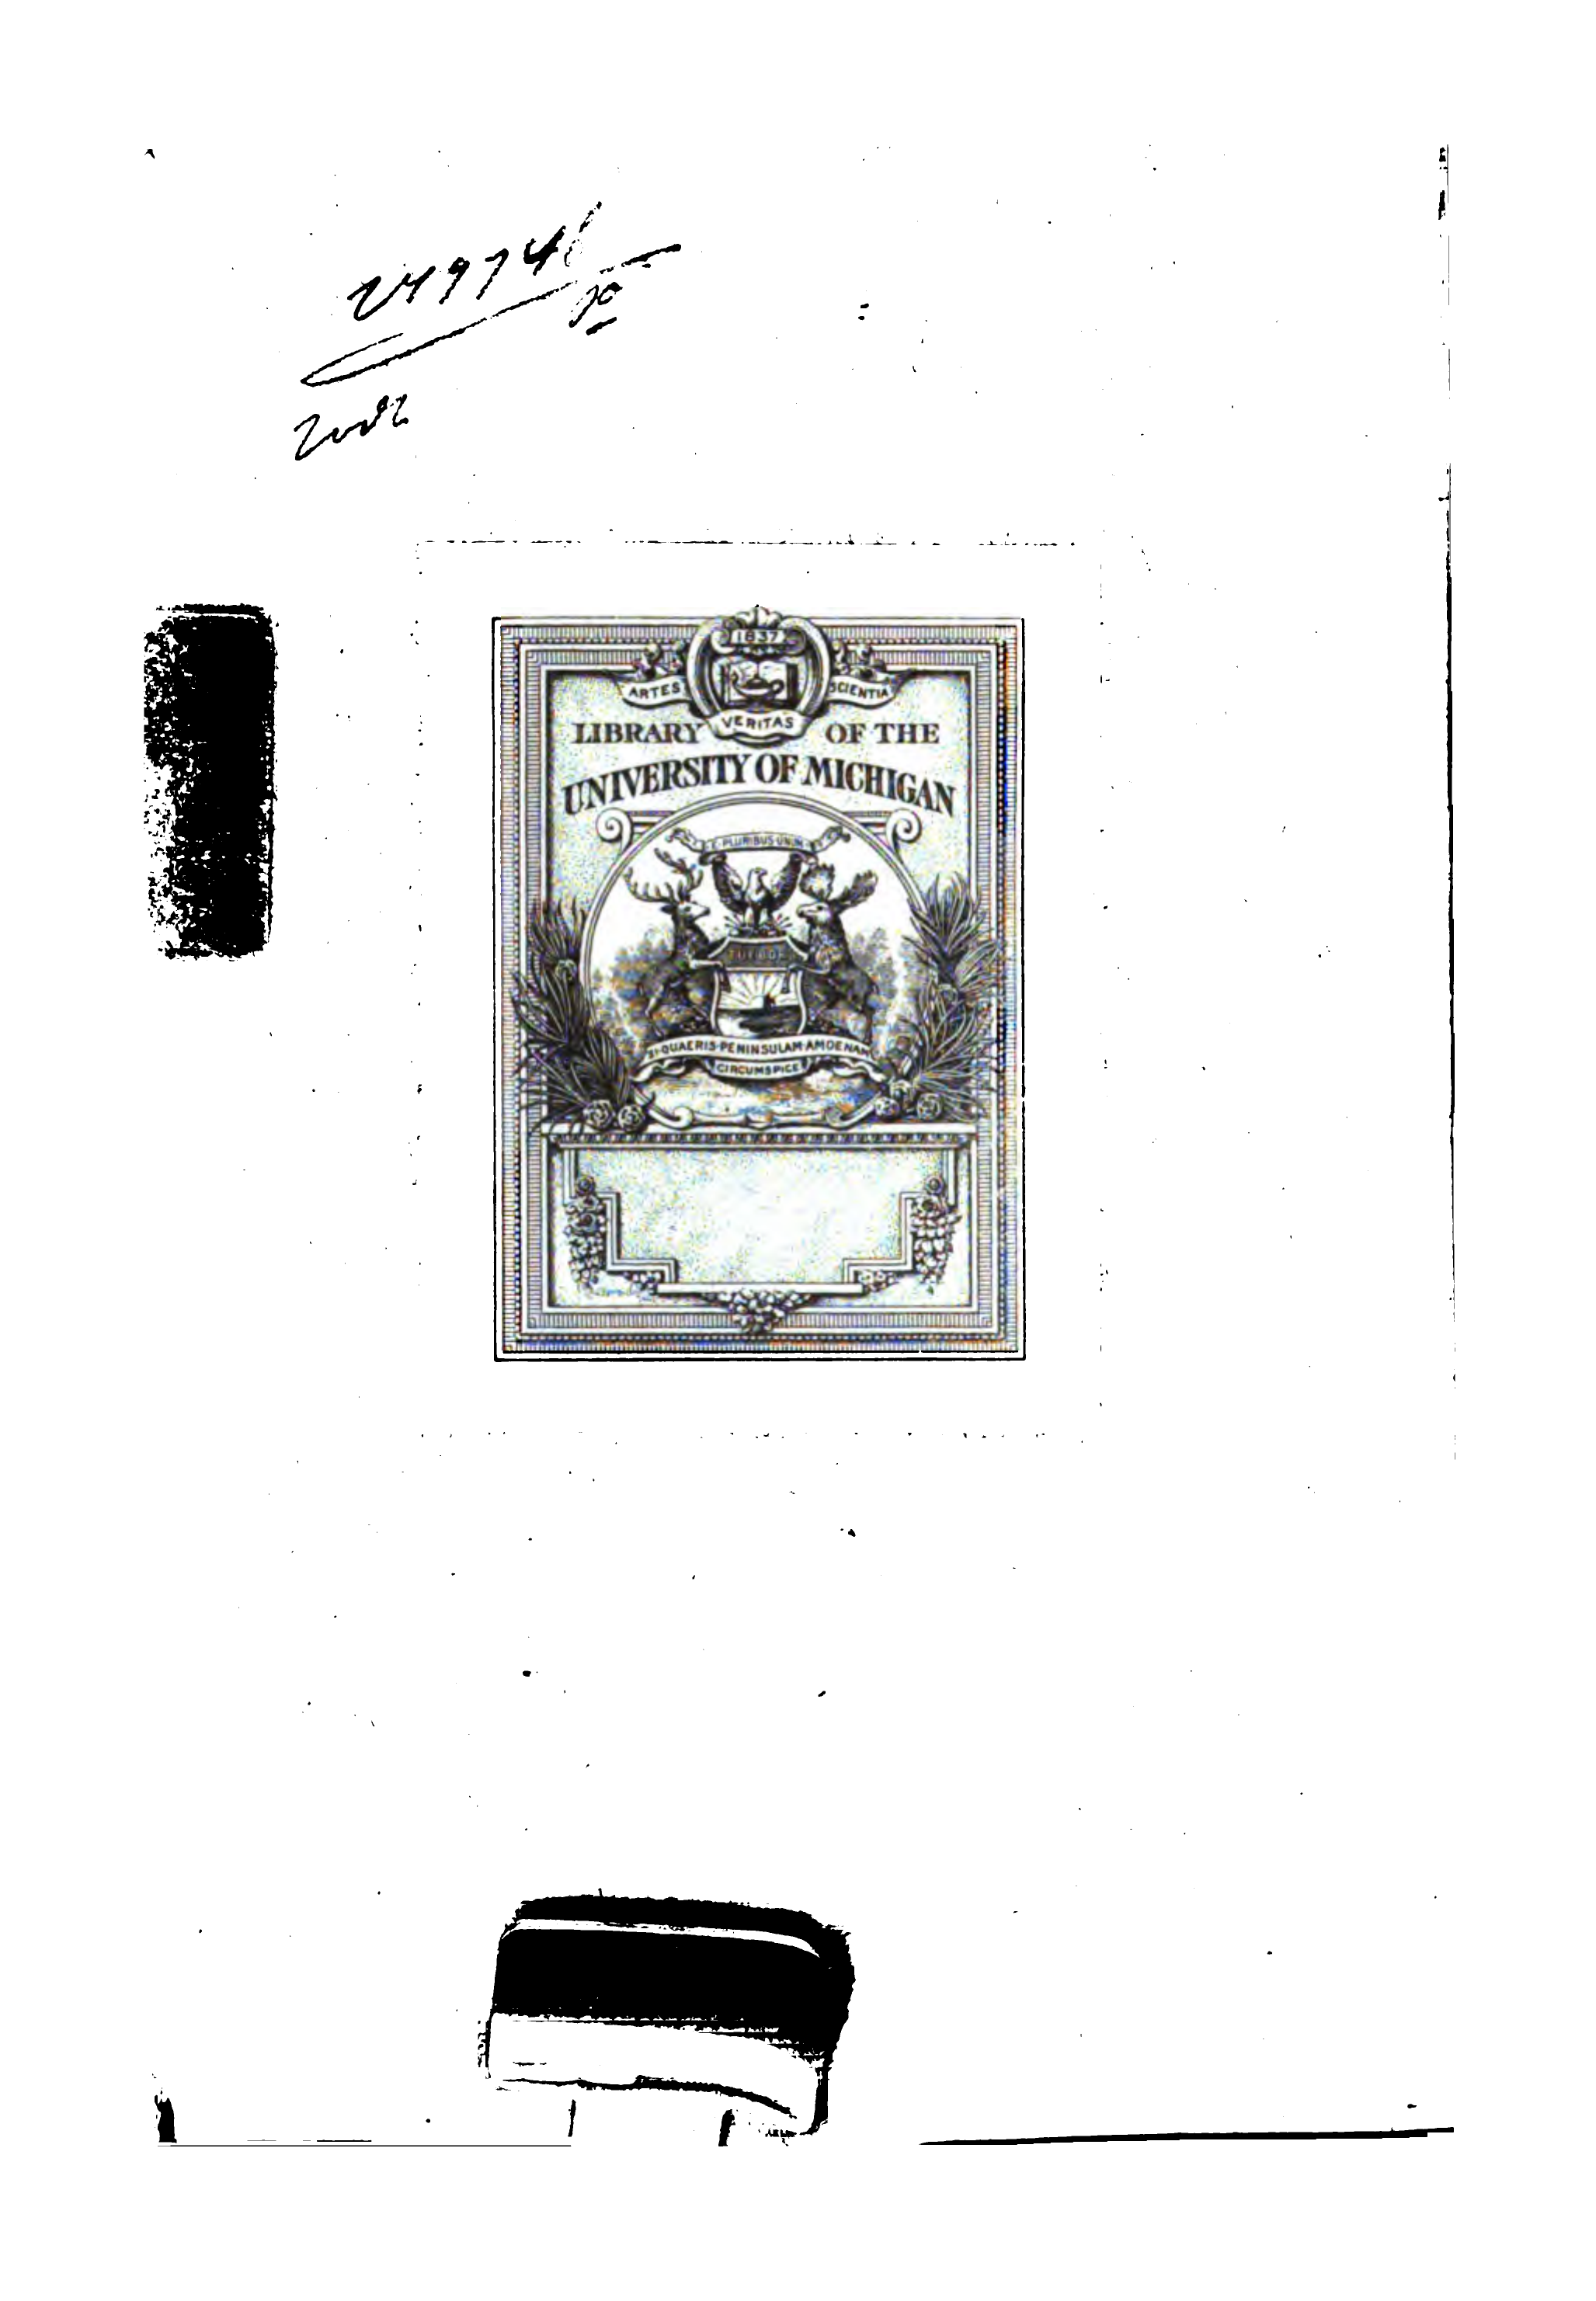 1837
ARTES SCIENTIA
VERITAS
LIBRARY OF THE
UNIVERSITY OF MICHIGAN
E·PLURIBUS·UNUM
TUEBOR
SI·QUAERIS·PENINSULAM·AMOENAM
CIRCUMSPICE